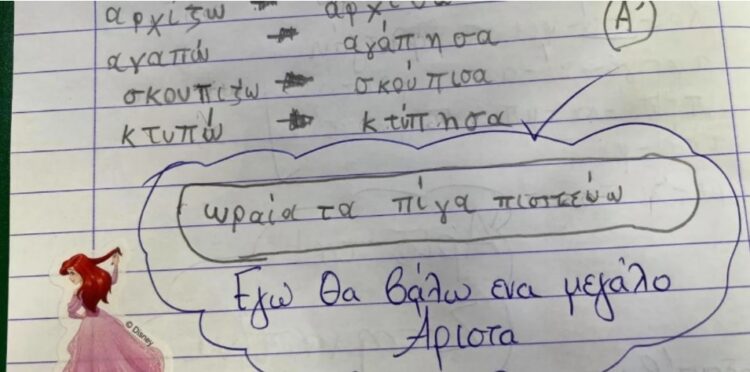 αρχίζω → άρχισα
αγαπώ → αγάπησα
σκουπίζω → σκούπισα
κτυπώ → κτύπησα
Α'
ωραία τα πίγα πιστεύω
Εγώ θα βάλω ενα μεγάλο
Άριστα
© Disney